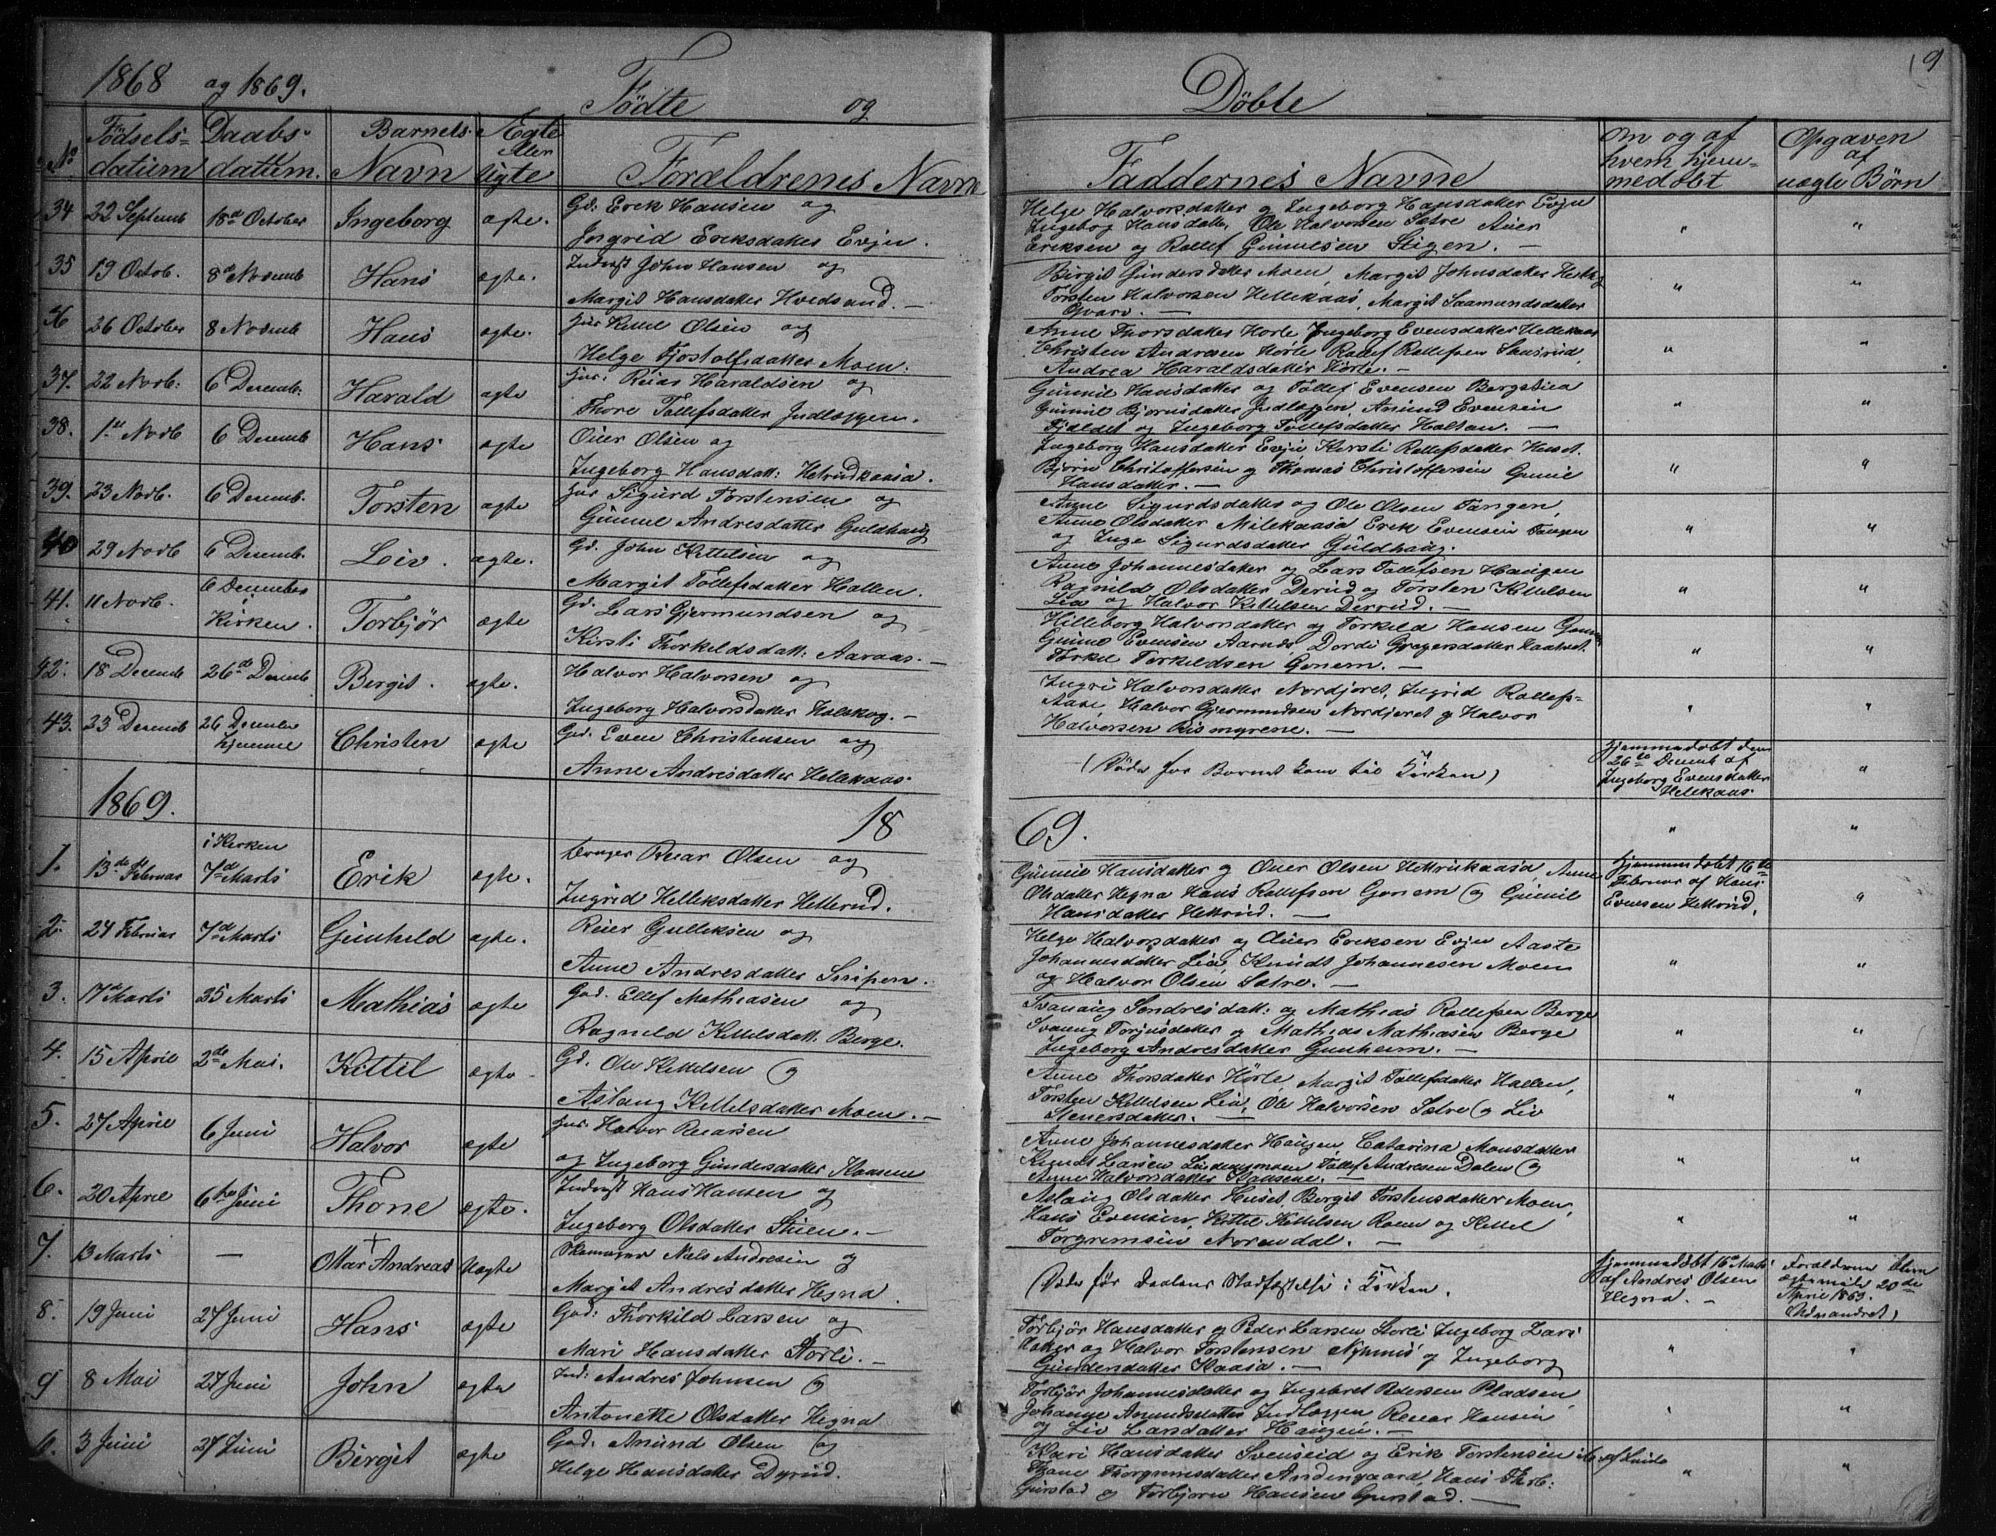 1868 og 1869. Fødte og Døbte 9
No. Fødsels=datum Daabs-dattem. Barnets Navn Ægte eller uægte Forældrenes Navne Faddernes Navne Om og af hvem hjem=medøbt Opgaven af uægte Børn
34 22 Septemb 18de October Ingeborg ægte. Gd. Erek Hansen og
Ingrid Eriksdatter Evju.
Helge Halvorsdatter og Ingeborg Hansdatter Evju
Ingebog Hansdatt. Ole Halvorsen Sætre
Eriksen og Rollef Gunnulsen Stigen. —
35 19 Octob. 8de Novemb Hans ægte. Inderst John Hansen og
Margit Hansdatter Hvedsand. —
Birgit Gundersdatter Moen, Margit Johnsdatter
Torsten Halvorsen Hellekaas, Margit Saamundsdatter
Gvarv. —
36 26 October 8 Novemb Hans ægte. Kittel Olsen og
Helge Fjostolfsdatter Moen.
Anne Thorsdatter Hørte Ingeborg Evensdatter Hellekaas
Christen Andresen Hørte Rollef Rollefsen
Andrea Haraldsdatter Hørte. —
37. 22 Novb. 6 Decemb. Harald ægte Reiar Haraldsen og
Thore Tollefsdatter Indlæggen.
Gunnil Hansdatter og Tollef Evensen Bergstien
Gunnil Bjørnsdatter Indlæggen, Amund Evensen
Fjeldet og Ingeborg Tollefsdatter Haltan. —
38. 1ste Novb 6 Decemb Hans ægte Olsen og
Ingeborg Hansdatt: Hetrudkaasa.
Ingeborg Hansdatter Evju Kirsti Rollefsdatter Huset
Bjørn Christoffersen og Thomas Christoffersen Gunnil
Hansdatter. —
39. 23 Novb. 6 Decemb. Torsten ægte Sigurd Torstensen og
Gunnil Andresdatter Guldhaug
Anne Sigurdsdatter og Ole Olsen Tangen,
Anne Olsdatter Milekaasa Erek Evensen Tangen
og Inge Sigurdsdatter Guldhaug.
40 29 Novb 6 Decemb. Leiv. ægte. Gd. John Kittelsen og
Margit Tollefsdatter Hallen.
Anne Johannesdatter og Lars Tollefsen Haugen
Ragnild Olsdatter Derud og Torsten Kittelsen
Lia og Halvor Kittelsen Derrud. —
41. 11 Novb. 6 December i Kirken. Torbjør ægte Gd. Lars Gjermundsen og
Kirsti Thorkildsdatt. Aaraas. —
Hilleborg Halvorsdatter og Torkild Hansen
Evensen Dordi Gregersdatter
Torkel Torkildsen Gonem. —
42. 18 Decemb 26de Decemb Bergit. ægte. Halvor Halvorsen og
Ingeborg Halvorsdatter Holskog. —
Ingri Halvorsdatter Nordjoret, Ingrid Rollefs-
Aase, Halvor Gjermundsen Nordjoret og Halvor
Halvorsen Rismyrene. —
43. 23 Decemb 26 December hjemme Christen ægte Gd. Even Christensen og
Anne Andresdatter Hellekaas.
(Døde før Barnet kom til Kirken)
Hjemmedøbt den
26de Decemb af
Ingeborg Evensdatter
Hellekaas
1869. 18 69.
1. 13de Februar i Kirken 7de Marts Erik ægte. Bruger Reiar Olsen og
Ingrid Helleksdatter Hetterud.
Gunnil Hansdatter og Olsen Anne
Olsdatter Hegna Hans Rollefsen Gonem og Gunnil
Hansdatter Hetrud. —
Hjemmedøbt 16de
Februar af Hans
Evensen Hetrud.
2. 24 Februar 7de Marts Gunhild ægte. Reier Gulliksen og
Anne Andresdatter Snipen.
Helge Halvorsdatter og Eriksen Evju Aaste
Johannesdatter Lia, Knudt Johannesen Moen
og Halvor Olsen Sætre. —
3. 17de Marts 25 Marts Mathias ægte Gd. Ellef Mathiasen og
Ragnild Kittelsdatt. Berge.
Svanaug Sondresdatt: og Mathias Rollefsen Berge
Svanug Torjusdatter og Mathias Mathiasen Berge
Ingeborg Andresdatter Gunheim. —
4. 15 April 2de Mai. Kittel ægte Gd. Ole Kittelsen og
Aslaug Kittelsdatter Moen. —
Anne Thorsdatter Hørte, Margit Tollefsdatter Hallen,
Torsten Kittelsen Lia, Ole Halvorsen Sætre og Liv
Stenersdatter. —
5. 27 April 6 Juni Halvor ægte Halvor Reiarsen
og Ingeborg Gundersdatter Kaasene
Anne Johannesdatter Haugen, Catarina Monsdatter
Knudt Larsen Tollef Andresen Dalen og
Anne Halvorsdatter Kaasene. —
6. 20 April 6te Juni Thone ægte. Inderst Hans Hansen og
Ingeborg Olsdatter Stien. —
Aslaug Olsdatter Huset Bergit Torstensdatter Moen,
Hans Evensen, Kittel Kittelsen Roen og Kittel
Torgrimsen Norendal. —
7. 13 Marts — Olar Andreas uægte Skomager Niels Andresen og
Margit Andresdatter Hegna.
(Døde før Daabens Stadfæstelse i Kirken.
Hjemmedøbt 16de Marts
af Andres Olsen
Hegna. —
Forældrene bleve
ægteviede 20de
April 1869.
Udvandret)
8. 19 Juni 27 Juni Hans ægte Gd: Thorkild Larsen og
Mari Hansdatter Storli. —
Torbjør Hansdatter og Peder Larsen Storli Ingeborg Lars
datter og Halvor Torstensen Nyhuus og Ingeborg
Gundersdatter Kaasa. —
9 8 Mai 27 Juni John ægte Ind: Andres Johnsen og
Antonette Olsdatter Hegna
Torbjør Johannesdatter og Ingebret Pedersen Pladsen,
Johanne Amundsdatter Indlæggen Reiar Hansen
og Liv Larsdatter Haugen. —
3 Juni 27 Juni Birgit ægte Gd: Amund Olsen og
Helge Hansdatter Dyrud.
Kari Hansdatter Svenseid og Erik Torstensen
Thone Thorgrimsdatter Andengaard, Hans Thrb:
Gurstad og Torbjørn Hansen Gurstad. —